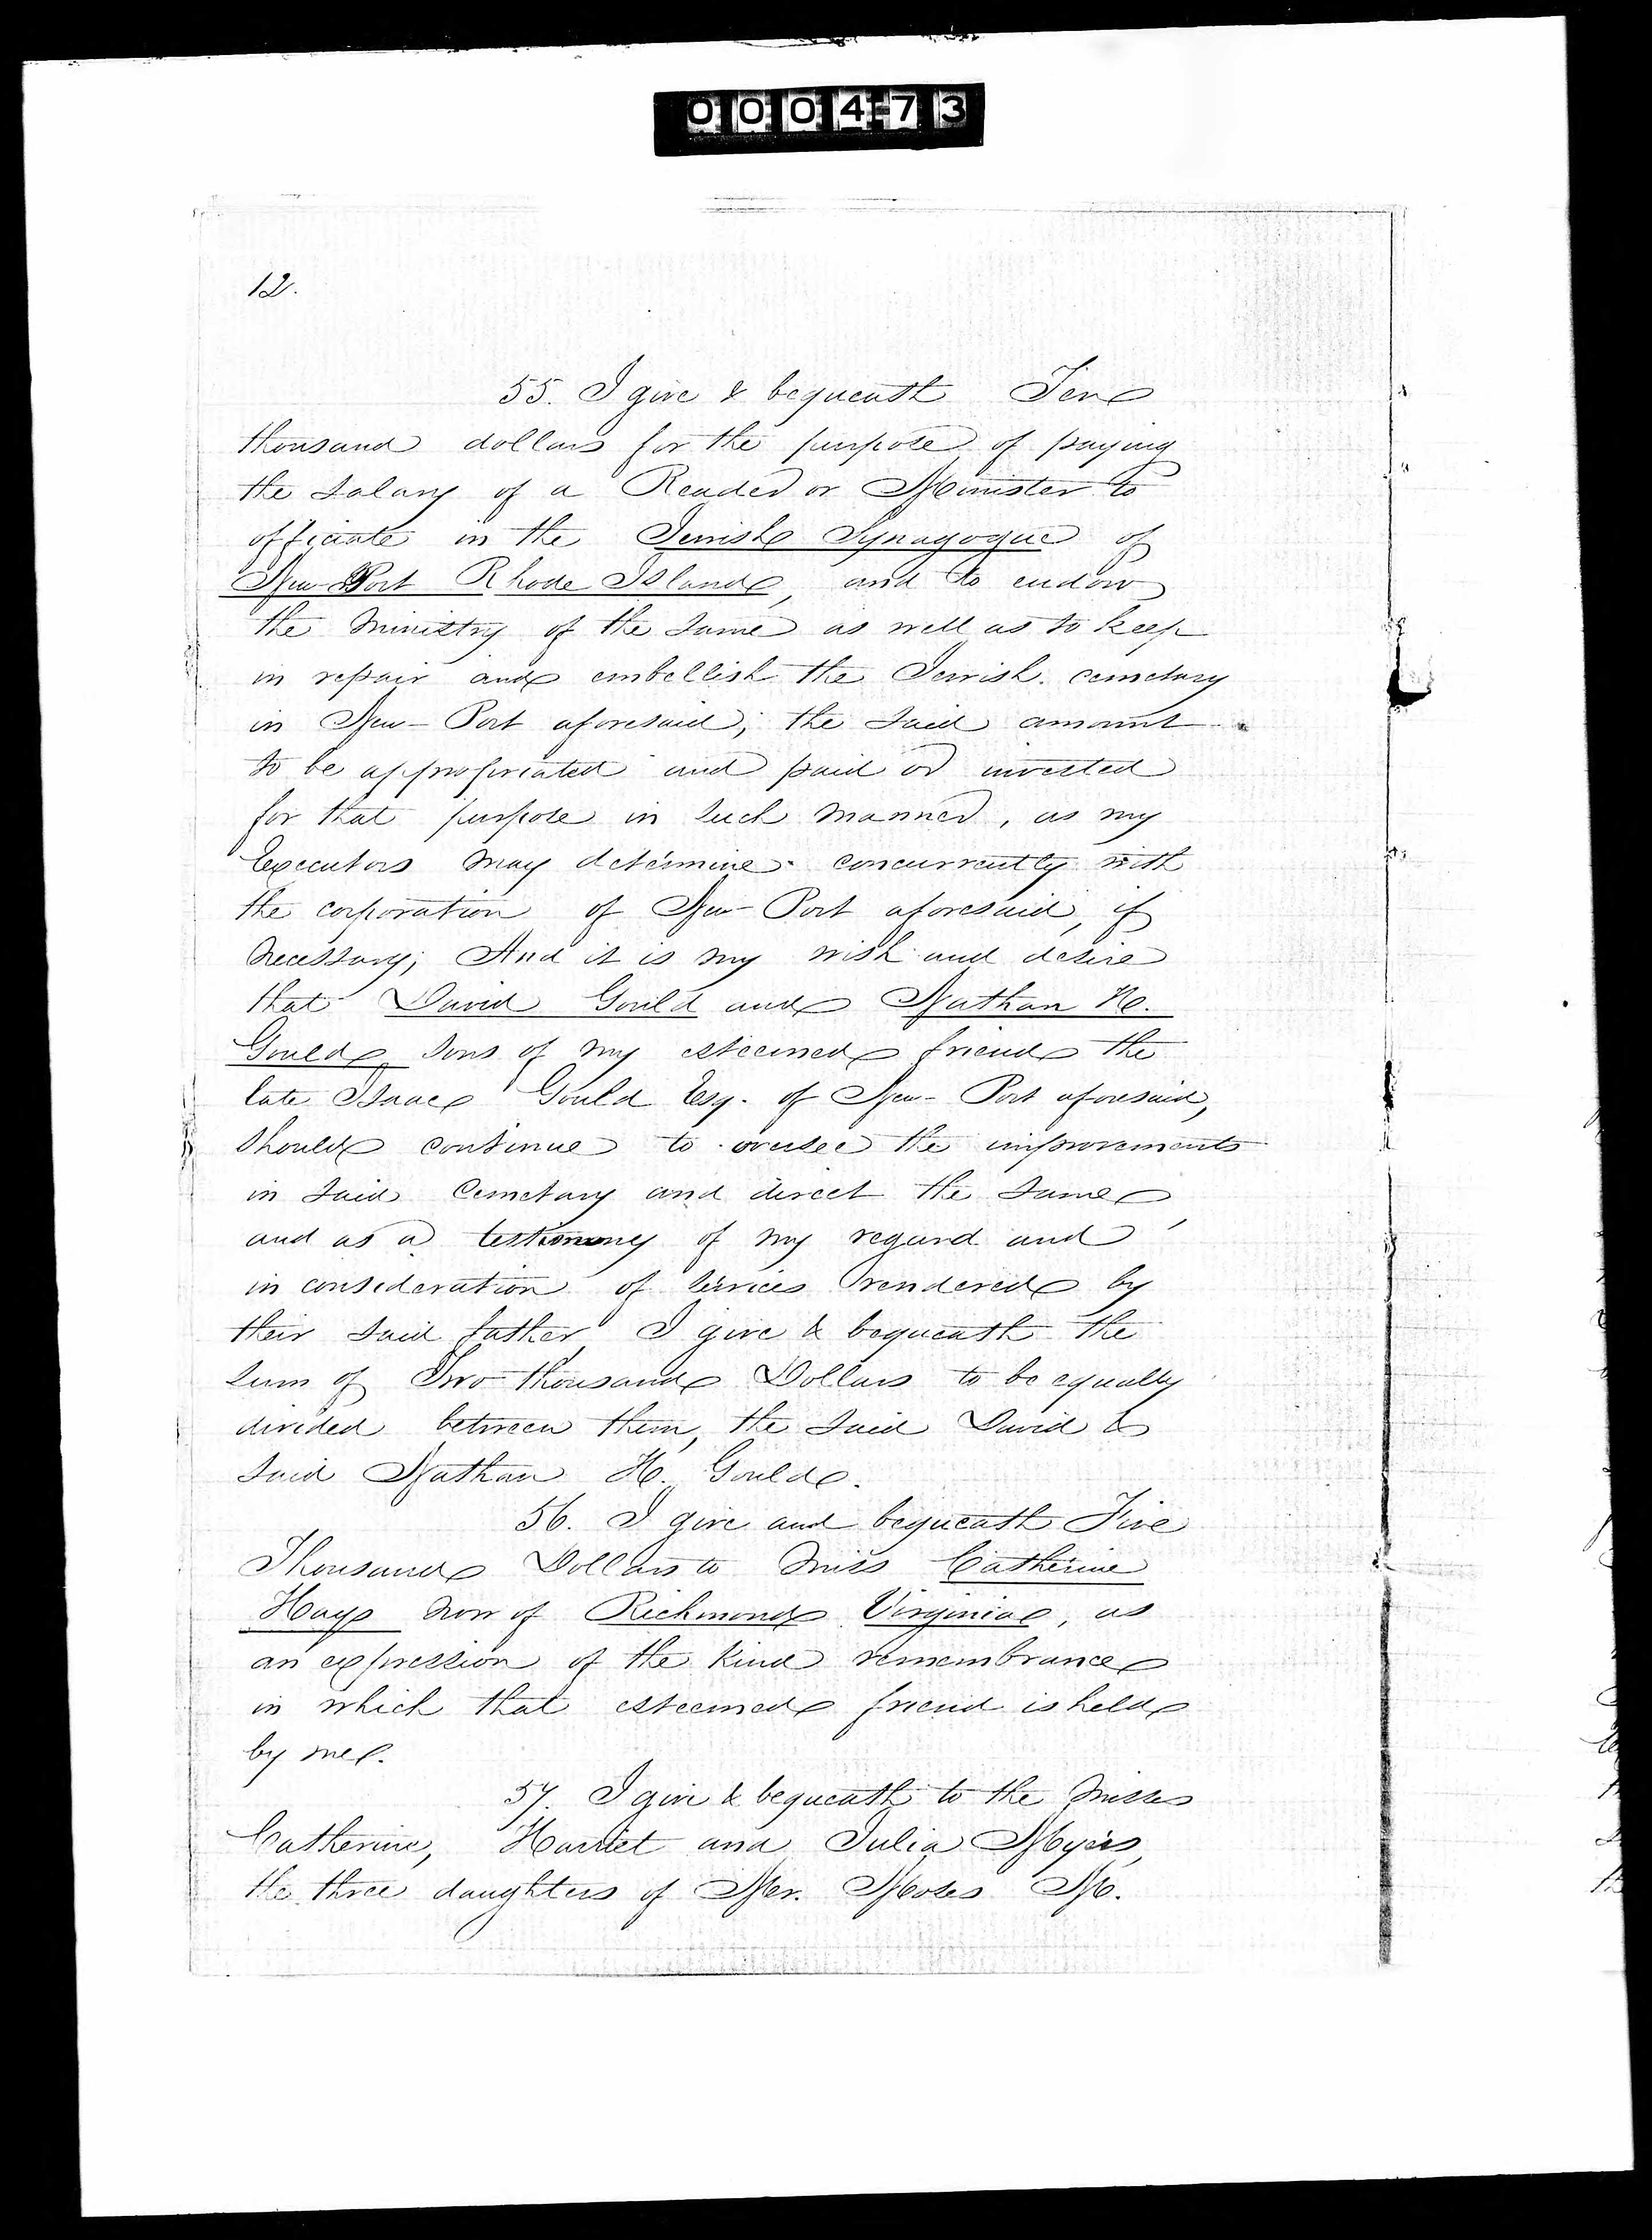 000473
12.
55. I give & bequeath Ten
thousand dollars for the purpose of paying
the salary of a Reader or Minister to
officiate in the Jewish Synagogue of
New Port Rhode Island, and to endow
the Ministry of the same as well as to keep
in repair and embellish the Jewish cemetary
in New-Port aforesaid; the said amount
to be appropriated and paid or invested
for that purpose in such manner, as my
Executors may determine concurrently with
the corporation of New-Port aforesaid, if
necessary; And it is my wish and desire
that David Gould and Nathan H.
Gould sons of my esteemed friend the
late Isaac Gould Esq. of New-Port aforesaid,
should continue to oversee the improvements
in said Cemetary and direct the same,
and as a testimony of my regard and
in consideration of services rendered by
their said father, I give & bequeath the
sum of Two thousand Dollars to be equally
divided between them, the said David &
said Nathan H. Gould.
56. I give and bequeath Five
Thousand Dollars to Miss Catherine
Hays now of Richmond Virginia, as
an expression of the kind remembrance
in which that esteemed friend is held
by me.
57. I give & bequeath to the Misses
Catherine, Harriet and Julia Myers,
the three daughters of Mr. Moses M.